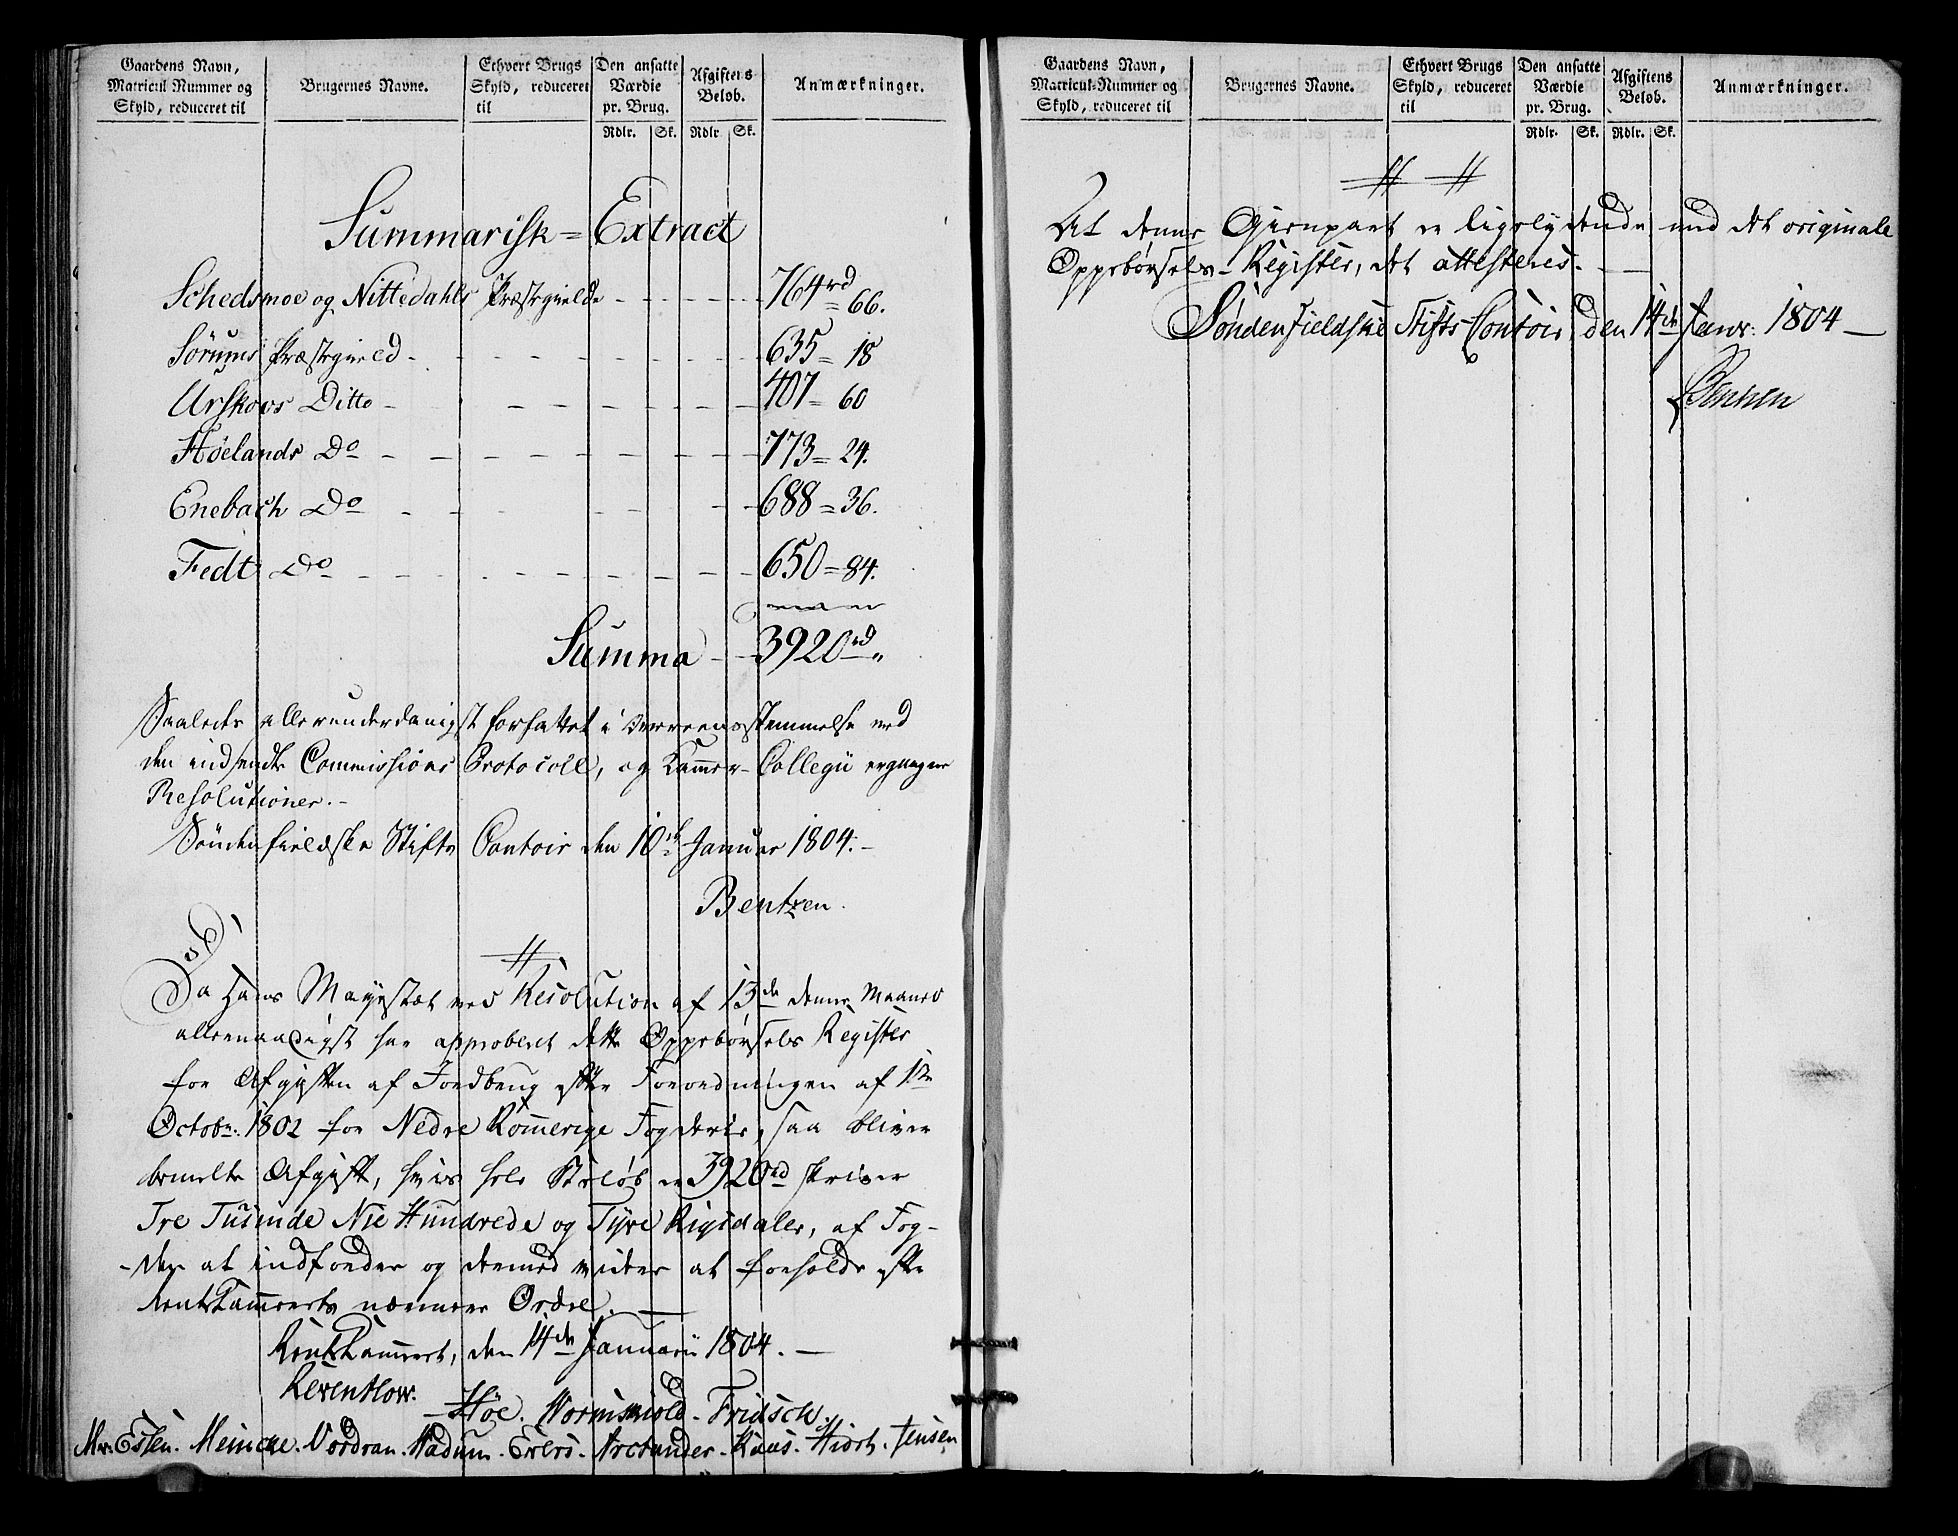 Gaardens Navn,
Matricul Nummer og
Skyld, reduceret til
Brugernes Navne.
Ethvert Brugs
Skyld, reduceret
til
Den ansatte
Værdie
pr. Brug.
Rdlr. Sk.
Afgiftens
Beløb.
Rdlr. Sk.
Anmærkninger.
Summarisk = Extract
Schedsmoe og Nittedahls Præstegielde - - - - - 764rd = 66.
Sørums Præstegield - - - - - 635 = 18
Urskovs Ditto - - - - - 407 = 60
Høelands Do - - - - - 773 = 24.
Enebach Do - - - - - 688 = 36.
Fedt Do - - - - - 650 = 84.
Summa - - 3920rd "
Saaledes allerunderdanigst forfattet i Overeensstemmelse med
den indsendte Commissions Protocoll, og Kammer-Collegii ergangne
Resolutioner. -
Søndenfieldske Stifts Contoir den 10de Januar 1804. -
Bentzen.
Da Hans Mayestæt ved Resolution af 13de denne Maaned
allernaadigst har approberet dette Oppebørsels Register
for Afgiften af Jordbrug efter Forordningen af 1ste
Octobr: 1802 for Nedre Rommerige Fogderie, saa bliver
bemelte Afgift, hvis hele Beløb er 3920rd skriver
Tre Tusinde Nie Hundrede og Tyve Rigsdaler, af Fog-
-den at indfordre og dermed videre at forholde efter
Rentekammerets nærmere Ordre. -
Rentekammeret, den 14de Januarii 1804. -
Reventlow.
Høe. Wormskiold. Fridsch.
Meincke. Vordran. Wadum. Erlers. Arctander. Kaas. Hiort. Jensen
Gaardens Navn,
Matricul-Nummer og
Skyld, reduceret til
Brugernes Navne.
Ethvert Brugs
Skyld, reduceret
til
Den ansatte
Værdie
pr. Brug.
Rdlr. Sk.
Afgiftens
Beløb.
Rdlr. Sk.
Anmærkninger.
At denne Gienpart er ligelydende med det originale
Oppebørsels-Register, det attesteres. -
Søndenfieldske Stifts Contoir, den 14de Janr: 1804 -
Bentzen